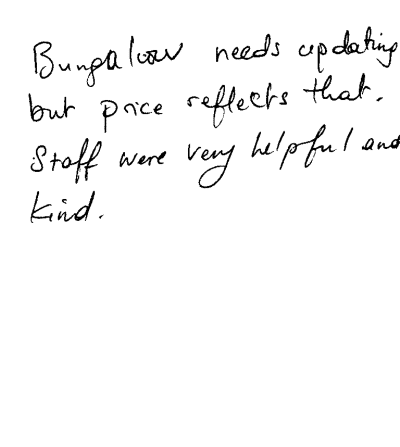 Bungalow needs updating
but price reflects that.
Staff were very helpful and
kind.